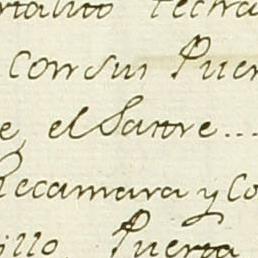 Techa
Con sus Puer
e, el Sastre...
Recamara y Co
illo Puerta